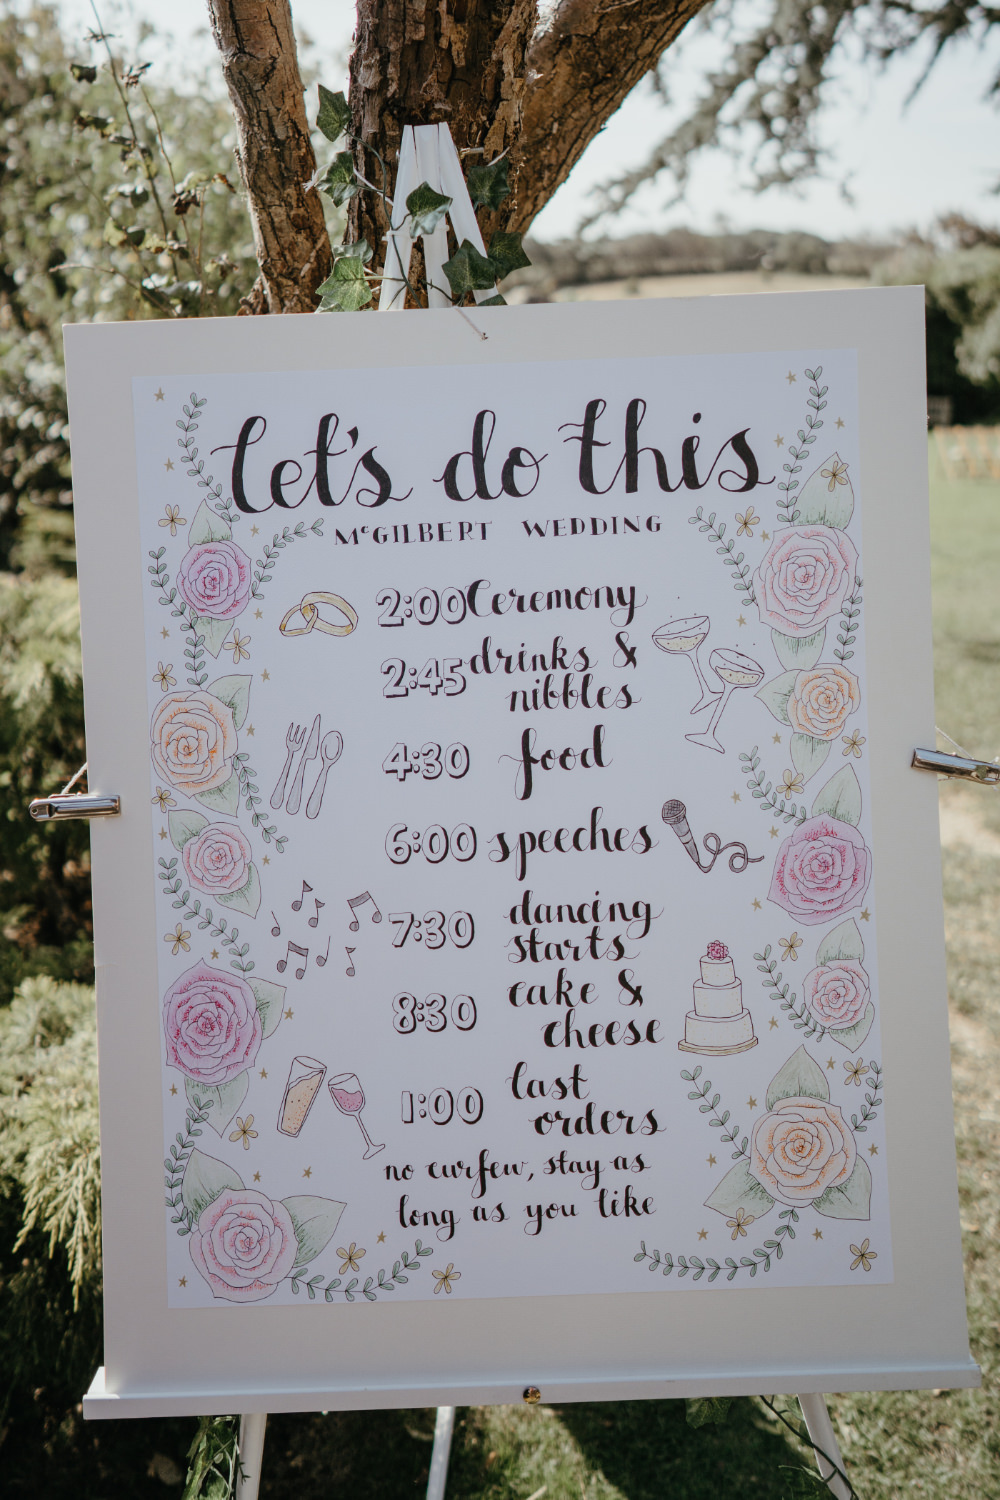 let's do this
McGILBERT WEDDING
2:00 Ceremony
2:45 drinks &
nibbles
4:30 food
6:00 speeches
7:30 dancing
starts
8:30 cake &
cheese
1:00 last
orders
no curfew, stay as
long as you like